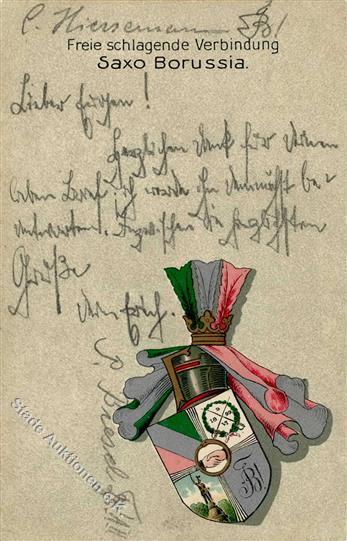 C. Hiersemann
Freie schlagende Verbindung
Saxo Borussia.
Lieber Eugen!
Herzlichen Dank für Deinen
lieben Brief. Ich werde ihn demnächst be-
antworten. Inzwischen die herzlichsten
Grüße
Dein Erich.
Stade Auktionen.de